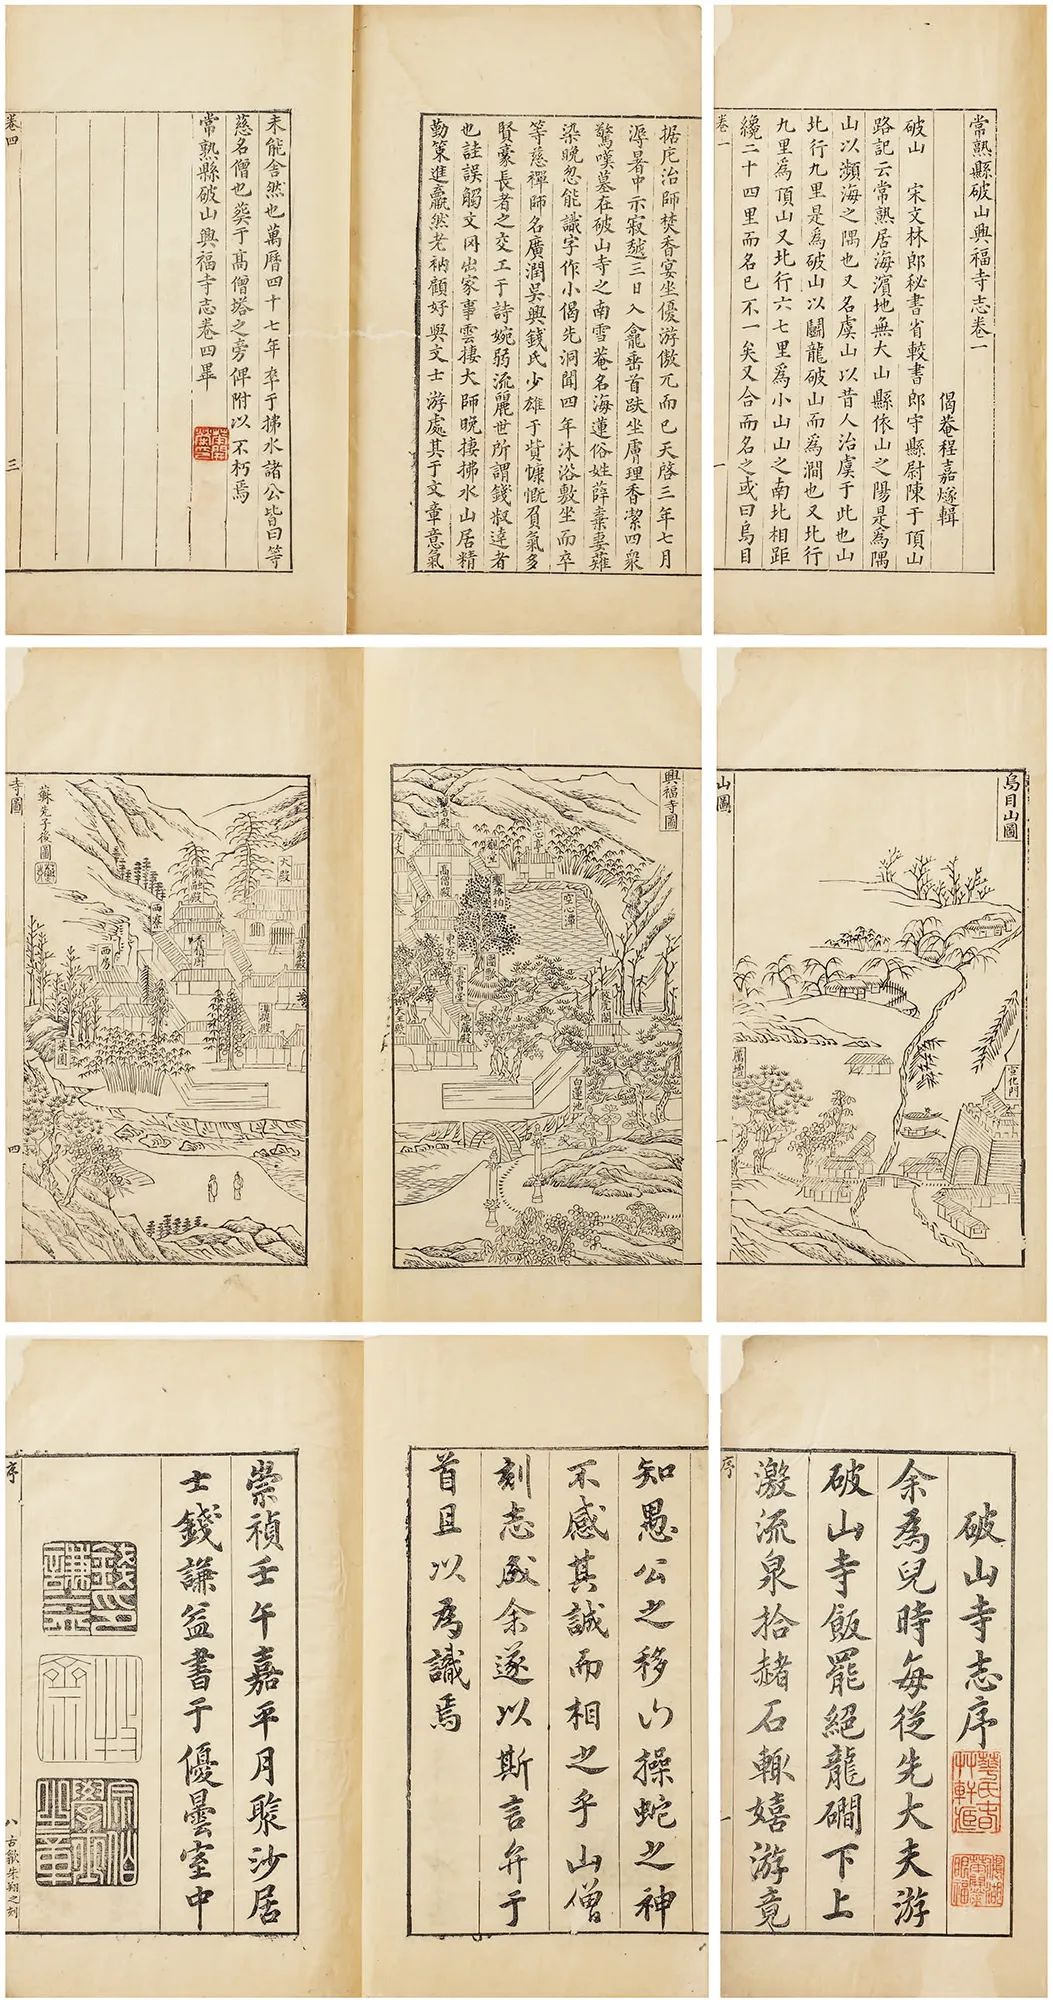 常熟縣破山興福寺志卷一
偈菴程嘉燧輯
破山 宋文林郎秘書省較書郎守縣尉陳于頂山
路記云常熟居海濱地無大山縣依山之陽是為隅
山以瀕海之隅也又名虞山以昔人治虞于此也山
北行九里是為破山以鬬龍破山而為澗也又北行
九里為頂山又北行六七里為小山山之南北相距
纔二十四里而名已不一矣又合而名之或曰烏目
卷一
一
据庀治師焚香宴坐優游傲兀而已天啓三年七月
溽暑中示寂越三日入龕垂首趺坐膚理香潔四衆
驚嘆墓在破山寺之南雪菴名海蓮俗姓薛棄妻薙
染晚忽能識字作小偈先洞聞四年沐浴敷坐而卒
等慈禪師名廣潤吳興錢氏少雄于貲慷慨負氣多
賢豪長者之交工于詩婉弱流麗世所謂錢叔達者
也詿誤觸文网出家事雲棲大師晚棲拂水山居精
勤策進羸然老衲顧好與文士游處其于文章意氣
未能舍然也萬曆四十七年卒于拂水諸公皆曰等
慈名僧也葬于高僧塔之旁俾附以不朽焉
常熟縣破山興福寺志卷四畢
卷四
三
烏目山圖
宣化門
厲壇
山圖
一
興福寺圖
空心亭
空心潭
高僧殿
方丈
地藏殿
天王殿
白蓮池
大殿
香積厨
西寮
西房
菜園
蘇先子後圖
寺圖
四
破山寺志序
余為兒時每從先大夫游
破山寺飯罷絕龍磵下上
激流泉拾赭石輒嬉游竟
序
一
知愚公之移山操蛇之神
不感其誠而相之乎山僧
刻志成余遂以斯言弁于
首且以為識焉
崇禎壬午嘉平月聚沙居
士錢謙益書于優曇室中
錢印謙益
序
八
古歙朱翔之刻